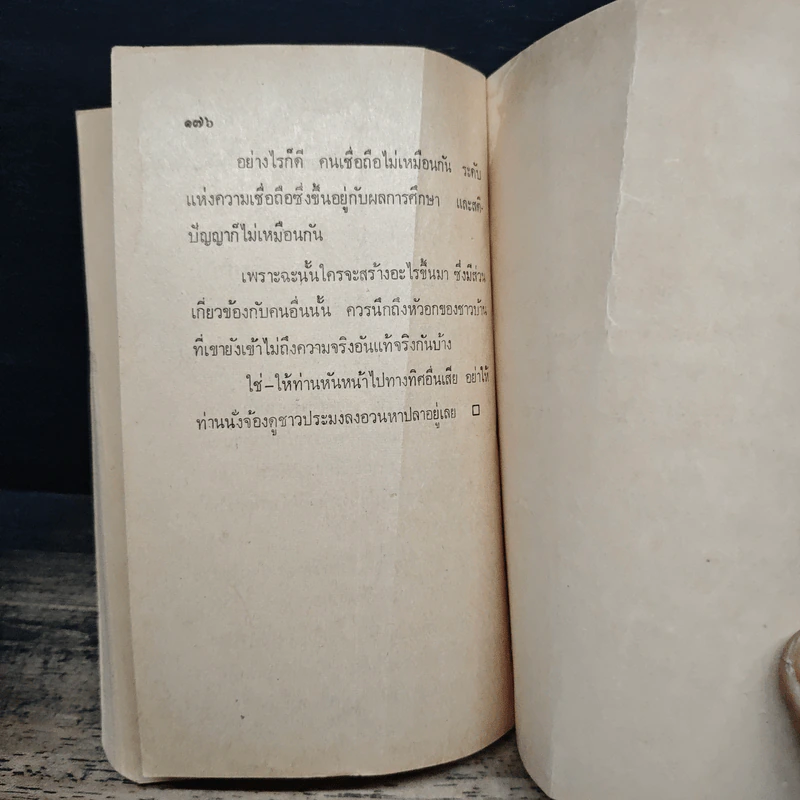 ๑๗๖
อย่างไรก็ดี คนเชื่อถือไม่เหมือนกัน ระดับ
แห่งความเชื่อถือซึ่งขึ้นอยู่กับผลการศึกษา และสติ-
ปัญญาก็ไม่เหมือนกัน
เพราะฉะนั้นใครจะสร้างอะไรขึ้นมา ซึ่งมีส่วน
เกี่ยวข้องกับคนอื่นนั้น ควรนึกถึงหัวอกของชาวบ้าน
ที่เขายังเข้าไม่ถึงความจริงอันแท้จริงกันบ้าง
ใช่–ให้ท่านหันหน้าไปทางทิศอื่นเสีย อย่าให้
ท่านนั่งจ้องดูชาวประมงลงอวนหาปลาอยู่เลย □